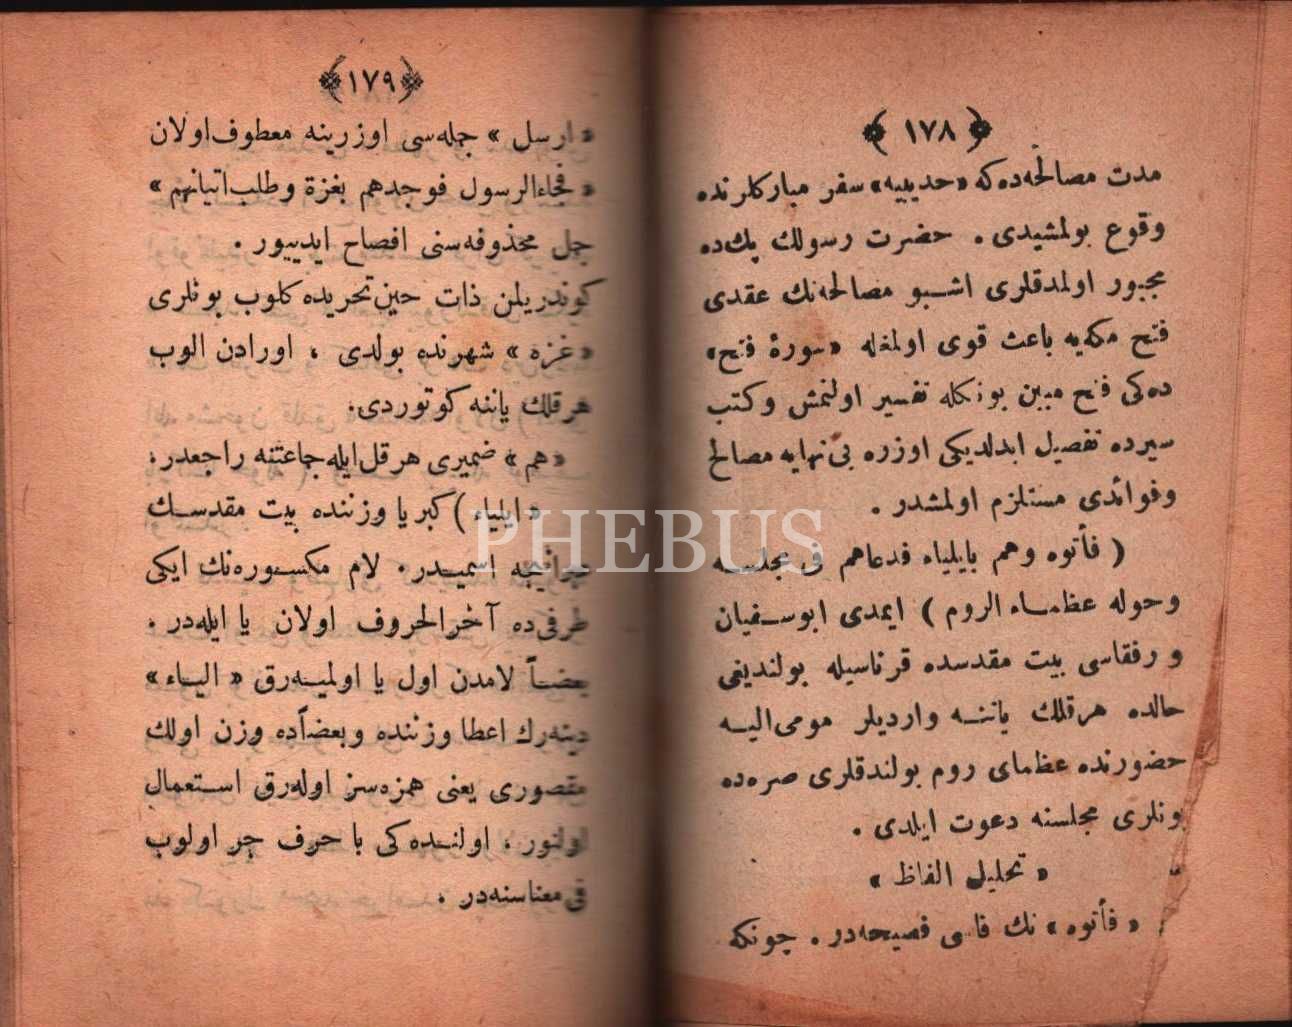 ﴿ ١٧٨ ﴾
مدت مصالحه‌ده‌كه «حديبيه» سفر مباركلرنده
وقوع بولمشيدى . حضرت رسولك پك ده
مجبور اولمدقلرى اشبو مصالحه‌نك عقدى
فتح مكه‌يه باعث قوى اولمغله «سورۀ فتح»
ده‌كى فتح مبين بونكله تفسير اولنمش و كتب
سيرده تفصيل ايدلديكى اوزره بى نهايه مصالح
وفوائدى مستلزم اولمشدر .
( فأتوه وهم بايلياء فدعاهم فى مجلسه
وحوله عظماء الروم ) ايمدى ابوسفيان
و رفقاسى بيت مقدسده قرناسيله بولنديغى
حالده هرقلك ياننه وارديلر مومى اليه
حضورنده عظماى روم بولندقلرى صره‌ده
بونلرى مجلسنه دعوت ايلدى .
« تحليل الفاظ »
« فأتوه » نك فاسى فصيحه‌در . چونكه
﴿١٧٩﴾
« ارسل » جمله‌سى اوزرينه معطوف اولان
« فجاءالرسول فوجدهم بغزة وطلب اتيانهم »
جمل محذوفه‌سنى افصاح ايدييور .
كوندريلن ذات حين تحريده كلوب بونلرى
« غزه » شهرنده بولدى ، اورادن الوب
هرقلك ياننه كوتوردى.
« هم » ضميرى هرقل ايله جماعتنه راجعدر.
« ايلياء ) كبريا وزننده بيت مقدسك
اسميدر. لام مكسوره‌نك ايكى
طرفى‌ده آخرالحروف اولان يا ايله‌در .
بعضاً لامدن اول يا اولميه‌رق « الياء »
دينه‌رك اعطا وزننده وبعضاًده وزن اولك
مقصورى يعنى همزه‌سز اوله‌رق استعمال
اولنور ، اولنده‌كى با حرف جر اولوب
فى معناسنه‌در .
PHEBUS